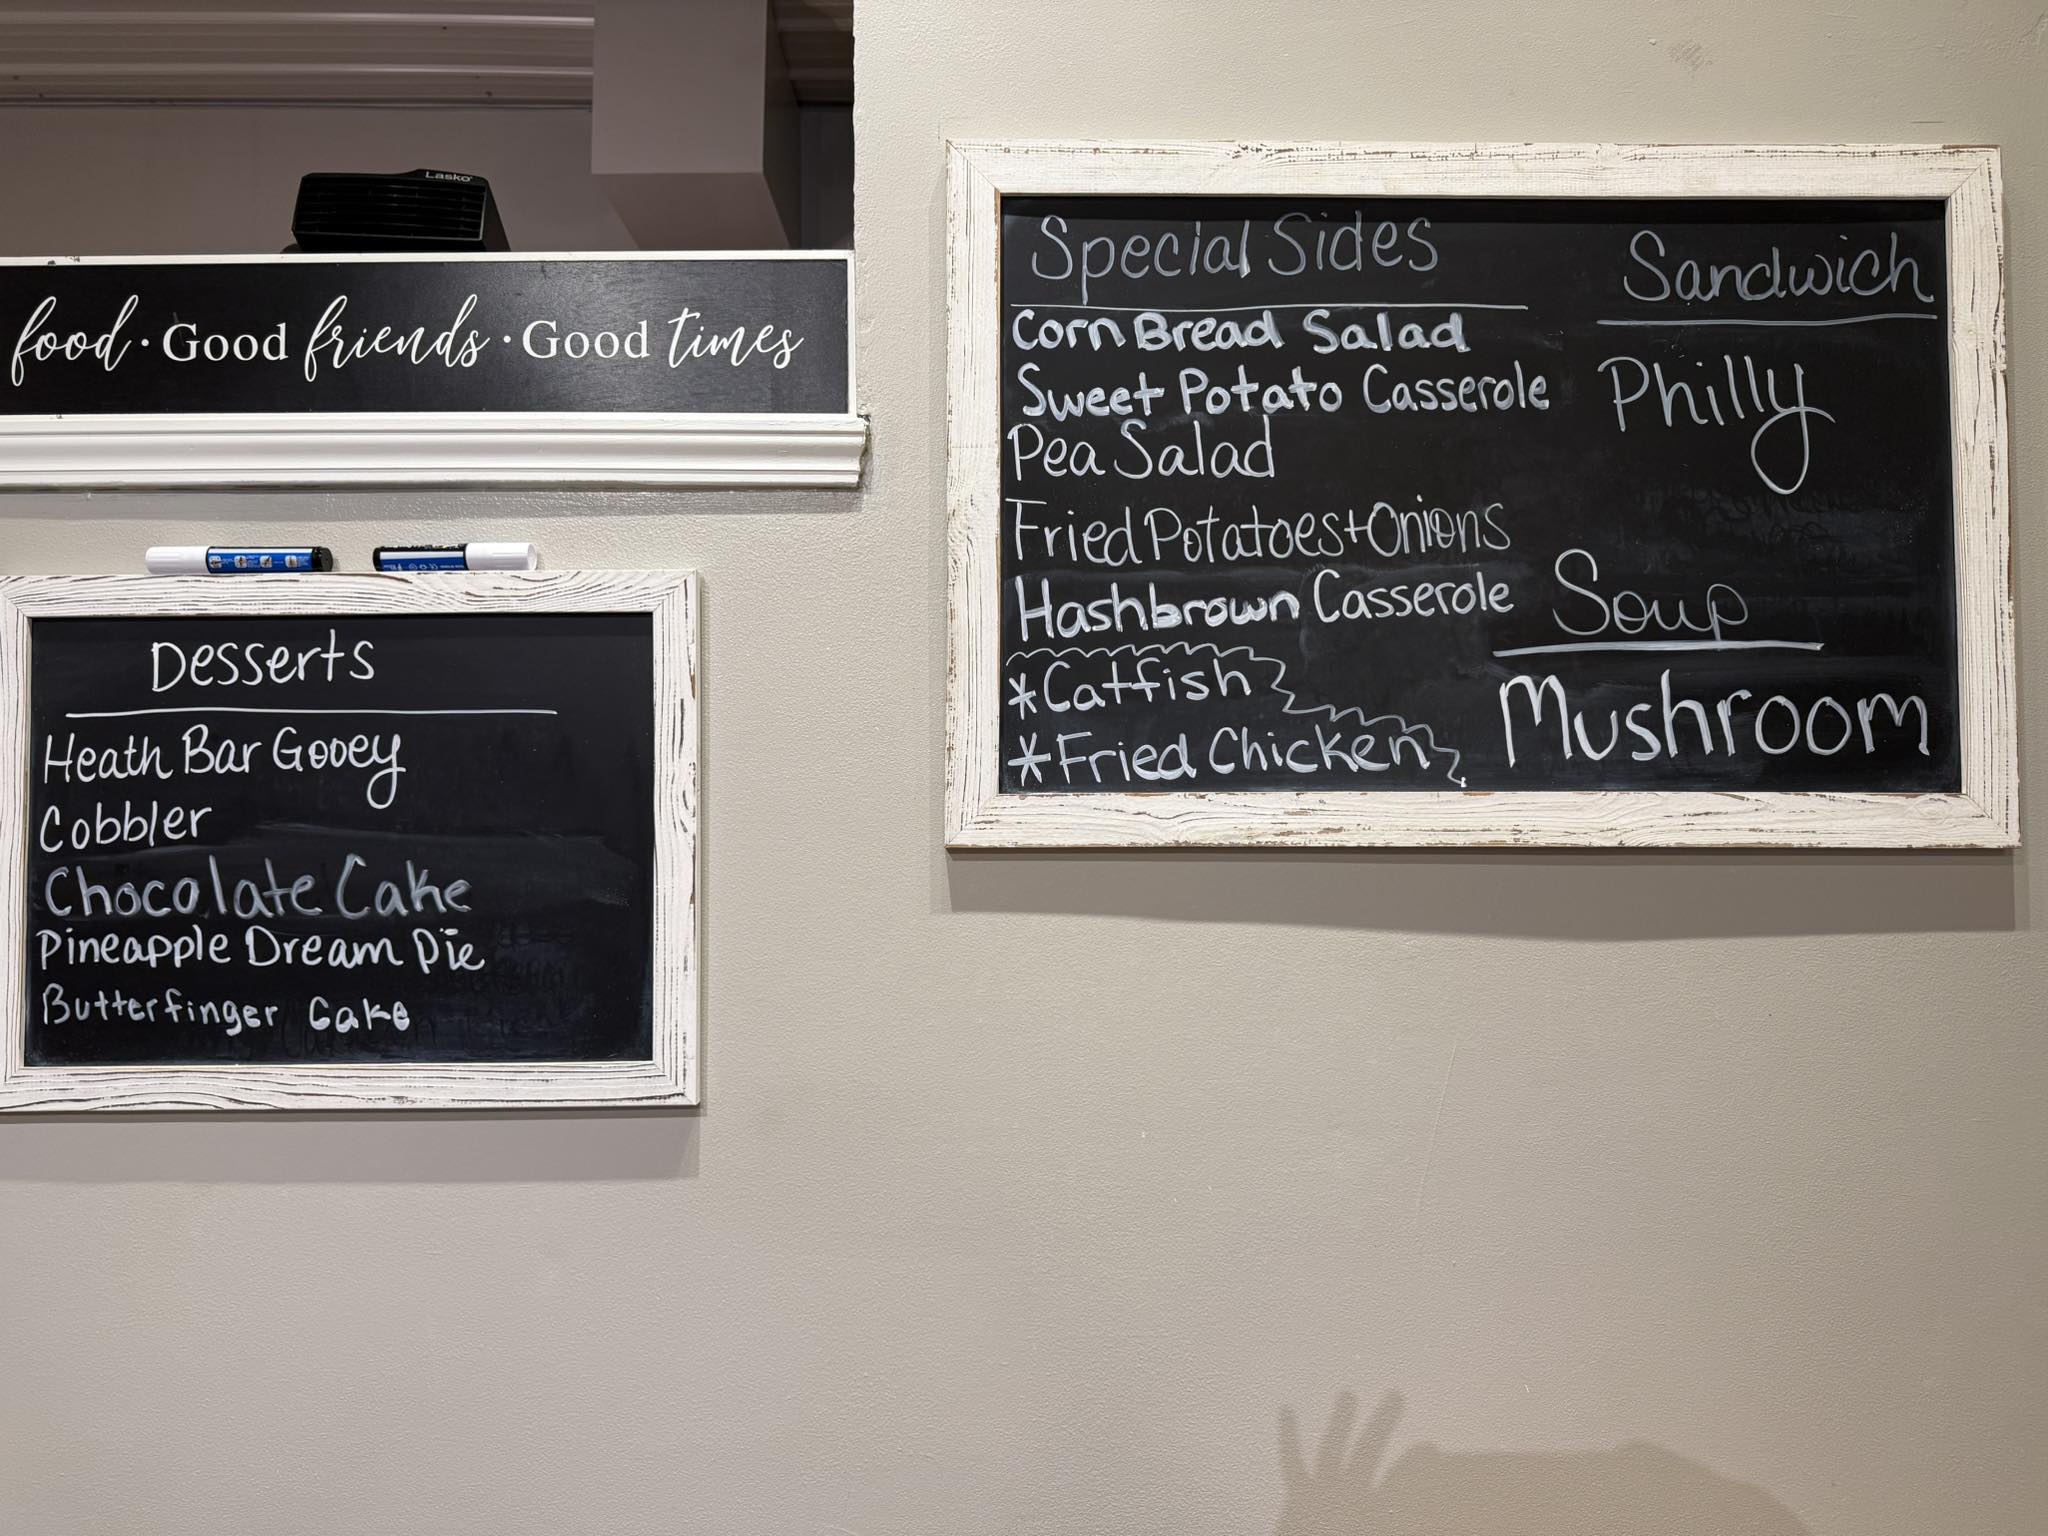 Lasko
food · Good friends · Good times
Desserts
Heath Bar Gooey
Cobbler
Chocolate Cake
Pineapple Dream Pie
Butterfinger Cake
Special Sides
Corn Bread Salad
Sweet Potato Casserole
Pea Salad
Fried Potatoes + Onions
Hashbrown Casserole
*Catfish
*Fried Chicken
Sandwich
Philly
Soup
Mushroom